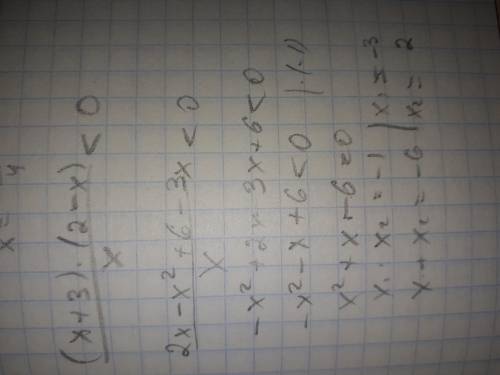 (x+3)·(2-x) / x < 0
2x-x²+6-3x / x < 0
-x²+2x-3x+6<0
-x²-x+6<0 |·(-1)
x²+x-6=0
x₁·x₂=-1 | x₁=-3
x₁+x₂=-6 | x₂=2